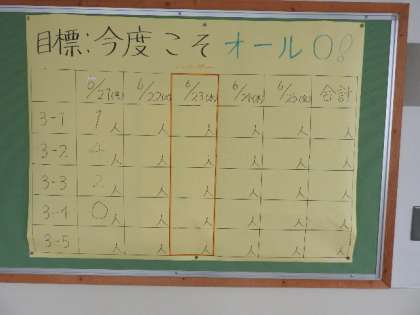 目標:今度こそオール0!!
6/21(月) 6/22(火) 6/23(水) 6/24(木) 6/25(金) 合計
3-1 1人 人 人 人 人 人
3-2 4人 人 人 人 人 人
3-3 2人 人 人 人 人 人
3-4 0人 人 人 人 人 人
3-5 人 人 人 人 人 人